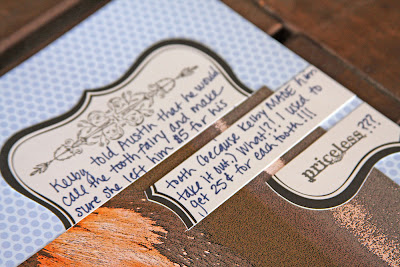 Kelby told Austin that he would
call the tooth fairy and make
sure she left him $5 for his
tooth (because Kelby MADE him
take it out.) What?! I used to
get 25¢ for each tooth!!!
priceless???